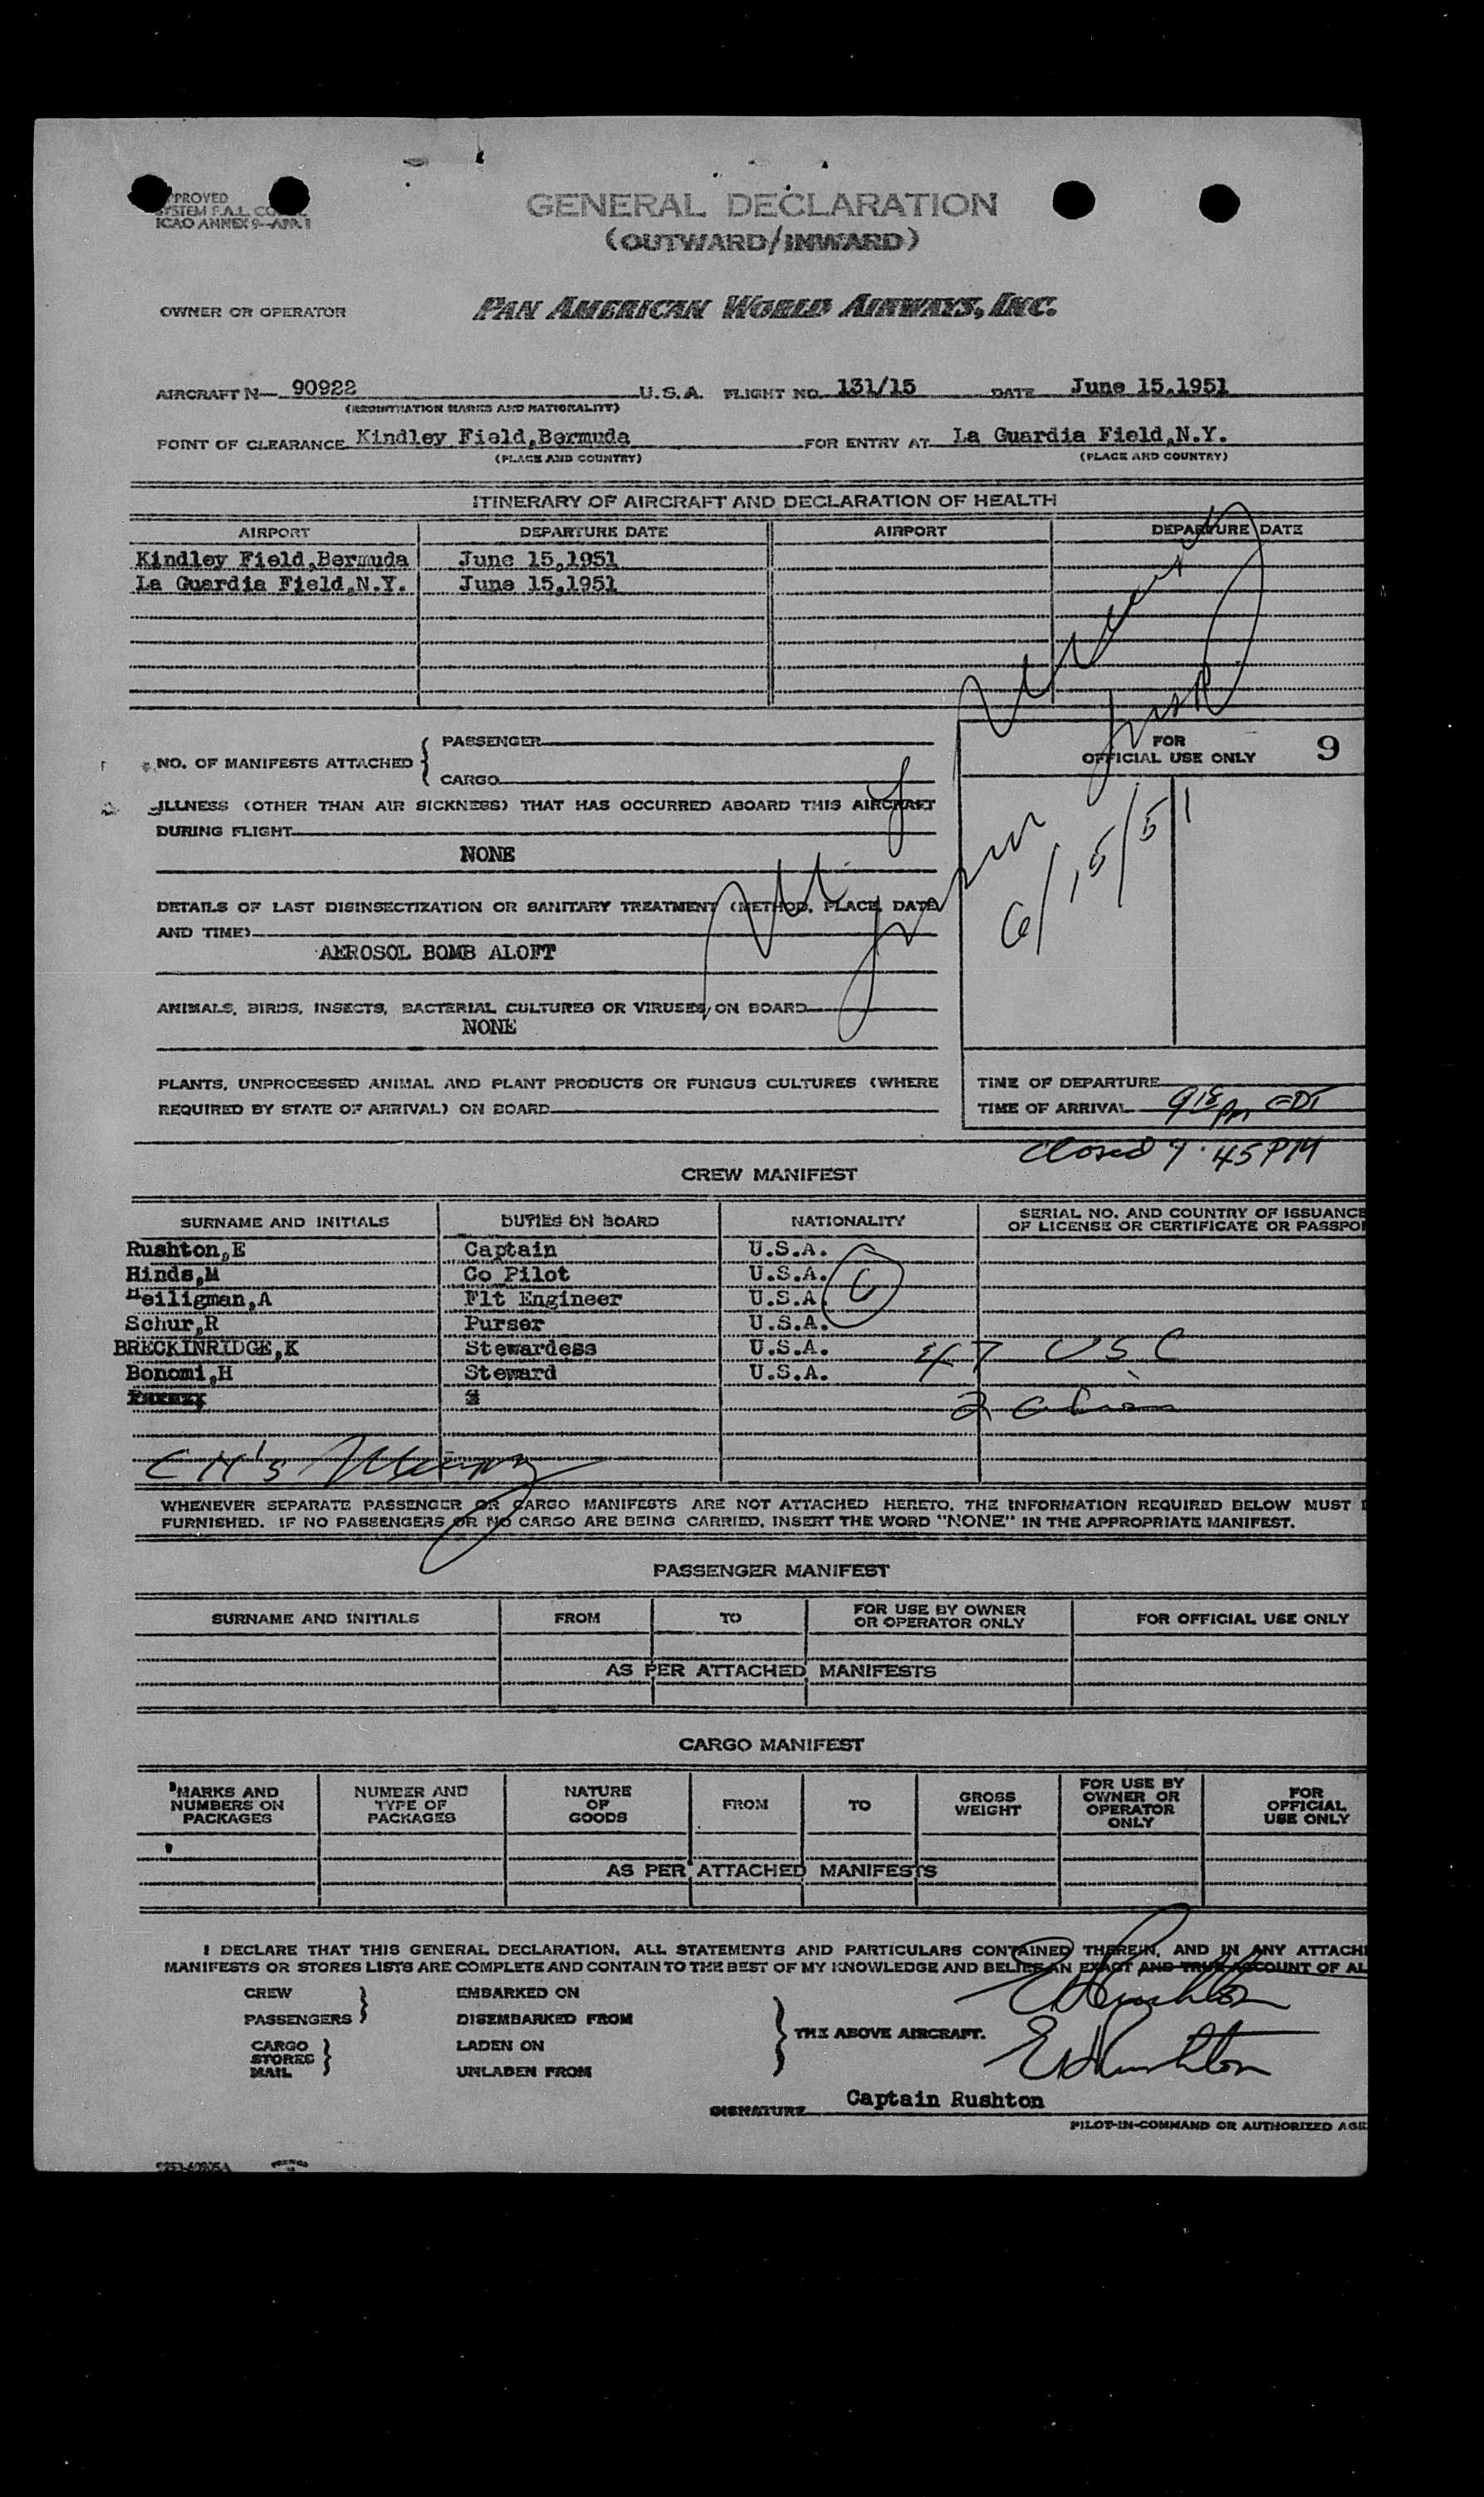 PPROVED
YSTEM F.A.L. CO
ICAO ANNEX 9-APR. 1
GENERAL DECLARATION
(OUTWARD/INWARD)
OWNER OR OPERATOR PAN AMERICAN WORLD AIRWAYS, INC.
AIRCRAFT N— 90922 U.S.A. FLIGHT NO. 131/15 DATE June 15,1951
(REGISTRATION MARKS AND NATIONALITY)
POINT OF CLEARANCE Kindley Field,Bermuda FOR ENTRY AT La Guardia Field,N.Y.
(PLACE AND COUNTRY) (PLACE AND COUNTRY)
ITINERARY OF AIRCRAFT AND DECLARATION OF HEALTH
AIRPORT DEPARTURE DATE AIRPORT DEPARTURE DATE
Kindley Field,Bermuda June 15,1951
La Guardia Field,N.Y. June 15,1951
NO. OF MANIFESTS ATTACHED { PASSENGER
CARGO
FOR
OFFICIAL USE ONLY 9
ILLNESS (OTHER THAN AIR SICKNESS) THAT HAS OCCURRED ABOARD THIS AIRCRAFT
DURING FLIGHT
NONE
6/15/51
DETAILS OF LAST DISINSECTIZATION OR SANITARY TREATMENT (METHOD, PLACE, DATE
AND TIME)
AEROSOL BOMB ALOFT
ANIMALS, BIRDS, INSECTS, BACTERIAL CULTURES OR VIRUSES, ON BOARD
NONE
PLANTS, UNPROCESSED ANIMAL AND PLANT PRODUCTS OR FUNGUS CULTURES (WHERE
REQUIRED BY STATE OF ARRIVAL) ON BOARD
TIME OF DEPARTURE
TIME OF ARRIVAL 918 pm EDT
Closed 9:45 PM
CREW MANIFEST
SURNAME AND INITIALS DUTIES ON BOARD NATIONALITY SERIAL NO. AND COUNTRY OF ISSUANCE
OF LICENSE OR CERTIFICATE OR PASSPO
Rushton,E Captain U.S.A.
Hinds,M Co Pilot U.S.A.
Heiligman,A Flt Engineer U.S.A. 6
Schur,R Purser U.S.A.
BRECKINRIDGE,K Stewardess U.S.A. 47 USC
Bonomi,H Steward U.S.A.
2 aliens
WHENEVER SEPARATE PASSENGER OR CARGO MANIFESTS ARE NOT ATTACHED HERETO, THE INFORMATION REQUIRED BELOW MUST
FURNISHED. IF NO PASSENGERS OR NO CARGO ARE BEING CARRIED, INSERT THE WORD "NONE" IN THE APPROPRIATE MANIFEST.
PASSENGER MANIFEST
SURNAME AND INITIALS FROM TO FOR USE BY OWNER
OR OPERATOR ONLY FOR OFFICIAL USE ONLY
AS PER ATTACHED MANIFESTS
CARGO MANIFEST
MARKS AND
NUMBERS ON
PACKAGES NUMBER AND
TYPE OF
PACKAGES NATURE
OF
GOODS FROM TO GROSS
WEIGHT FOR USE BY
OWNER OR
OPERATOR
ONLY FOR
OFFICIAL
USE ONLY
AS PER ATTACHED MANIFESTS
I DECLARE THAT THIS GENERAL DECLARATION, ALL STATEMENTS AND PARTICULARS CONTAINED THEREIN, AND IN ANY ATTACH
MANIFESTS OR STORES LISTS ARE COMPLETE AND CONTAIN TO THE BEST OF MY KNOWLEDGE AND BELIEF AN EXACT AND TRUE ACCOUNT OF AL
CREW
PASSENGERS } EMBARKED ON
DISEMBARKED FROM
CARGO
STORES
MAIL } LADEN ON
UNLADEN FROM
} THE ABOVE AIRCRAFT.
E Rushton
E Rushton
SIGNATURE Captain Rushton
PILOT-IN-COMMAND OR AUTHORIZED AGE